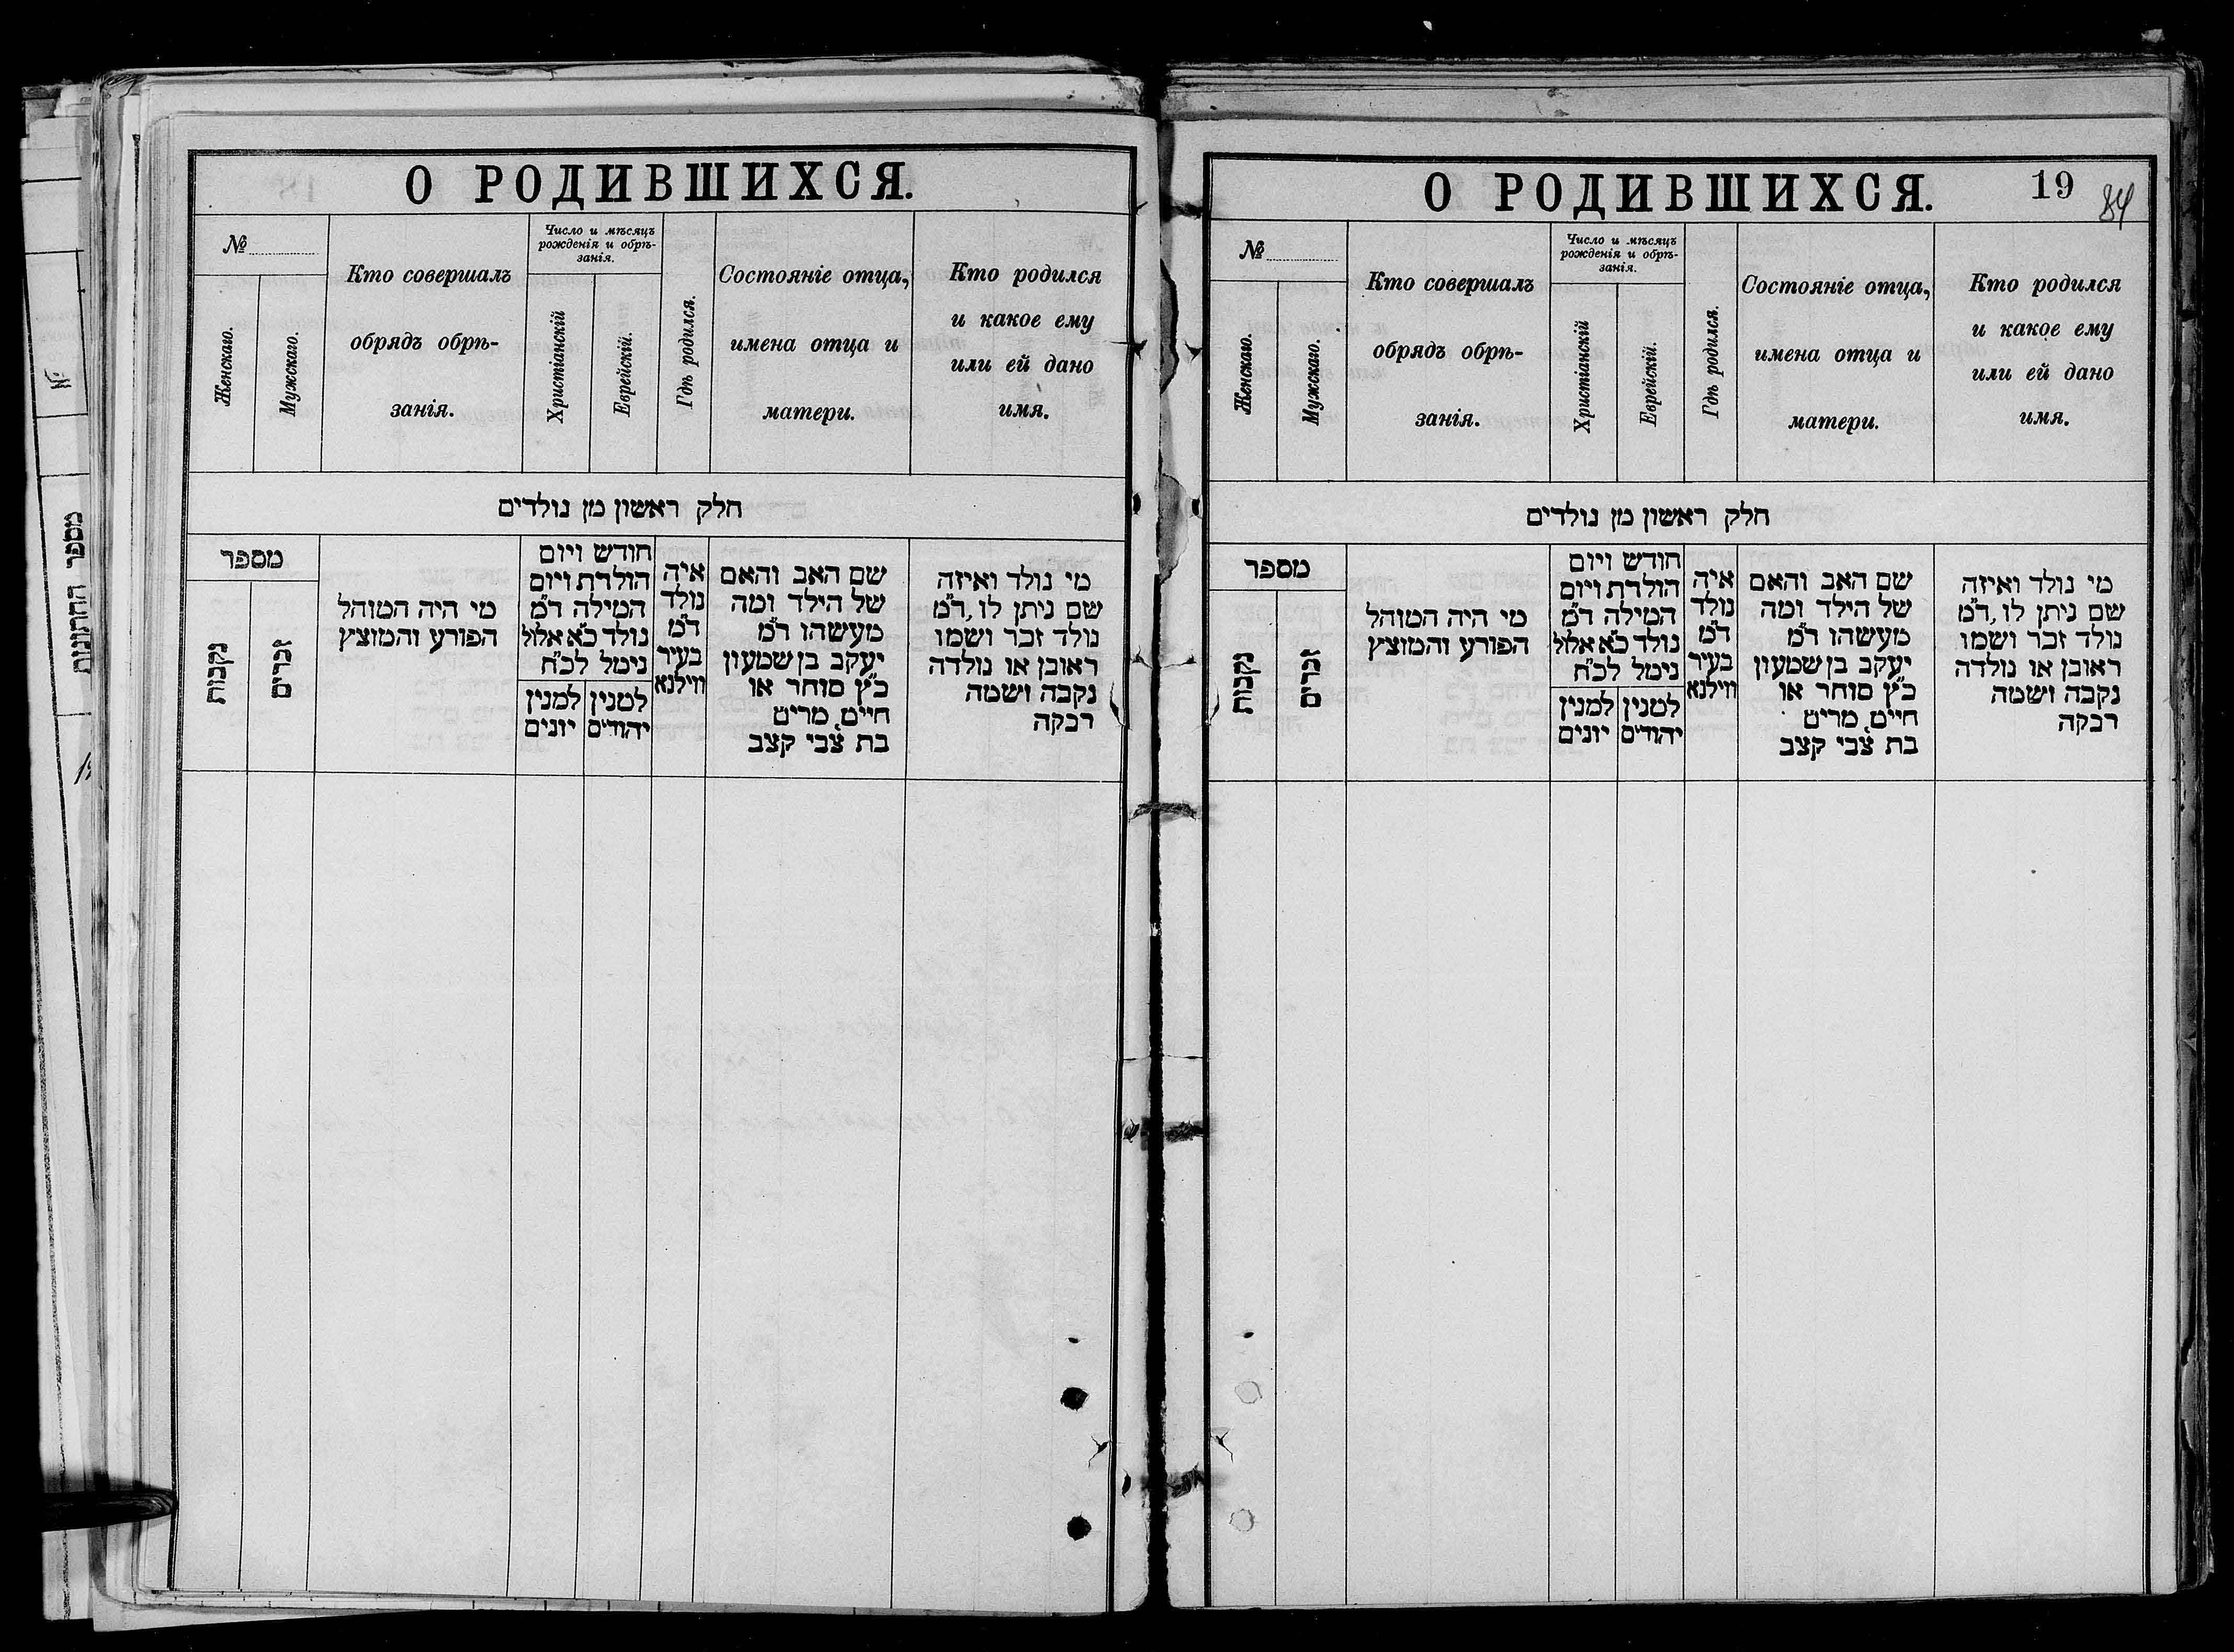 О РОДИВШИХСЯ.
№
Женскаго.
Мужскаго.
Кто совершалъ
обрядъ обрѣ-
занія.
Число и мѣсяцъ
рожденія и обрѣ-
занія.
Христіанскій
Еврейскій.
Гдѣ родился.
Состояніе отца,
имена отца и
матери.
Кто родился
и какое ему
или ей дано
имя.
חלק ראשון מן נולדים
מספר
נקבות
זכרים
מי היה המוהל
הפורע והמוצץ
חודש ויום
הולדת ויום
המילה ד״מ
נולד כ״א אלול
נימל לכ״ח
למנין
יונים
למנין
יהודים
איה
נולד
ד״מ
בעיר
ווילנא
שם האב והאם
של הילד ומה
מעשהו ד״מ
יעקב בן שמעון
כ״ץ סוחר או
חיים, מרים
בת צבי קצב
מי נולד ואיזה
שם ניתן לו, ד״מ
נולד זכר ושמו
ראובן או נולדה
נקבה ושמה
רבקה
О РОДИВШИХСЯ.
19
84
№
Женскаго.
Мужскаго.
Кто совершалъ
обрядъ обрѣ-
занія.
Число и мѣсяцъ
рожденія и обрѣ-
занія.
Христіанскій
Еврейскій.
Гдѣ родился.
Состояніе отца,
имена отца и
матери.
Кто родился
и какое ему
или ей дано
имя.
חלק ראשון מן נולדים
מספר
נקבות
זכרים
מי היה המוהל
הפורע והמוצץ
חודש ויום
הולדת ויום
המילה ד״מ
נולד כ״א אלול
נימל לכ״ח
למנין
יונים
למנין
יהודים
איה
נולד
ד״מ
בעיר
ווילנא
שם האב והאם
של הילד ומה
מעשהו ד״מ
יעקב בן שמעון
כ״ץ סוחר או
חיים, מרים
בת צבי קצב
מי נולד ואיזה
שם ניתן לו, ד״מ
נולד זכר ושמו
ראובן או נולדה
נקבה ושמה
רבקה
№
מספר החתונות